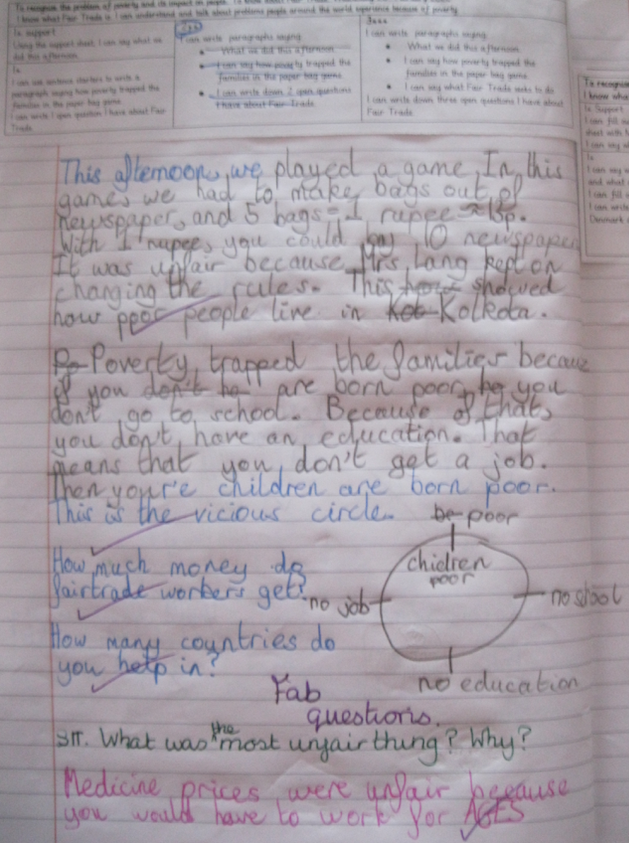 To recognise the problem of poverty and its impact on people.
I know what Fair Trade is. I can understand and talk about problems people around the world experience because of poverty.
1a support
Using the support sheet, I can say what we did this afternoon.
1a
I can use sentence starters to write a
paragraph saying how poverty trapped the
families in the paper bag game.
I can write 1 open question I have about Fair
Trade.
I can write paragraphs saying:
What we did this afternoon.
I can say how poverty trapped the
families in the paper bag game.
I can write down 2 open questions
I have about Fair Trade.
I can write paragraphs saying:
What we did this afternoon.
I can say how poverty trapped the
families in the paper bag game.
I can say what Fair Trade seeks to do
I can write down three open questions I have about
Fair Trade.
To recognise
I know what
1a Support
I can fill
1a
I can say
This afternoon, we played a game. In this
game, we had to make bags out of
newspaper, and 5 bags = 1 rupee ≈ 13p.
With 1 rupee, you could buy 10 newspaper
It was unfair because Mrs Lang kept on
changing the rules. This showed
how poor people live in Kolkota.
Poverty, trapped the families becaus
if you don't be are born poor, he you
don't go to school. Because of that,
you don't have an education. That
means that you don't get a job.
Then you're children are born poor.
This is the vicious circle.
be poor
chidren
poor
no job
no school
no education
How much money do
fairtrade workers get?
How many countries do
you help in?
Fab
questions.
SIT. What was the most unfair thing? Why?
Medicine prices were unfair because
you would have to work for AGES